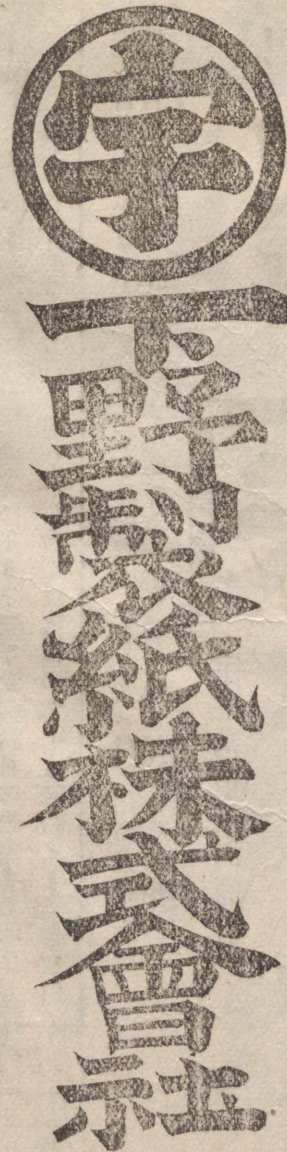 字
下野製紙株式會社